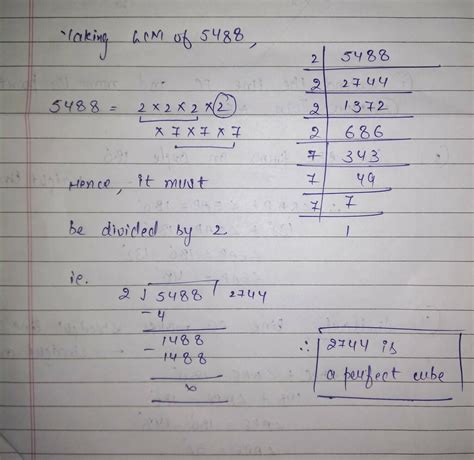 Taking LCM of 5488,
2 | 5488
2 | 2744
2 | 1372
2 | 686
7 | 343
7 | 49
7 | 7
1
5488 = 2 × 2 × 2 × 2
× 7 × 7 × 7
Hence, it must
be divided by 2
ie.
2 ) 5488 ( 2744
- 4
1488
- 1488
0
∴ 2744 is
a perfect cube